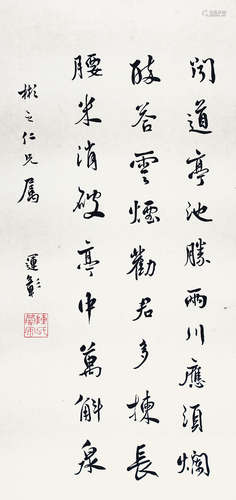 聞道亭池勝兩川應須爛
醉答雲煙勸君多揀長
腰米消破亭中萬斛泉
彬之仁兄屬 運彰